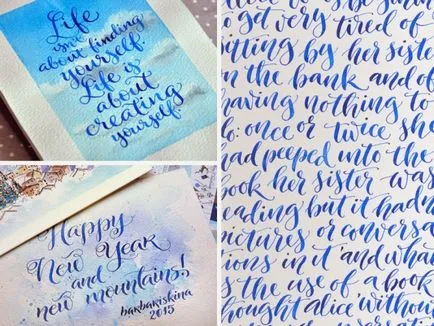 Life
isn't
about finding
yourself.
Life is
about
creating
yourself.
Happy
New Year
and
new mountains!
barbariskina
2015
o get very tired of
sitting by her sister
on the bank and of
having nothing to
do: once or twice she
had peeped into the
book her sister was
eading but it had n
pictures or conversa
ions in it and what
is the use of a book
thought alice without